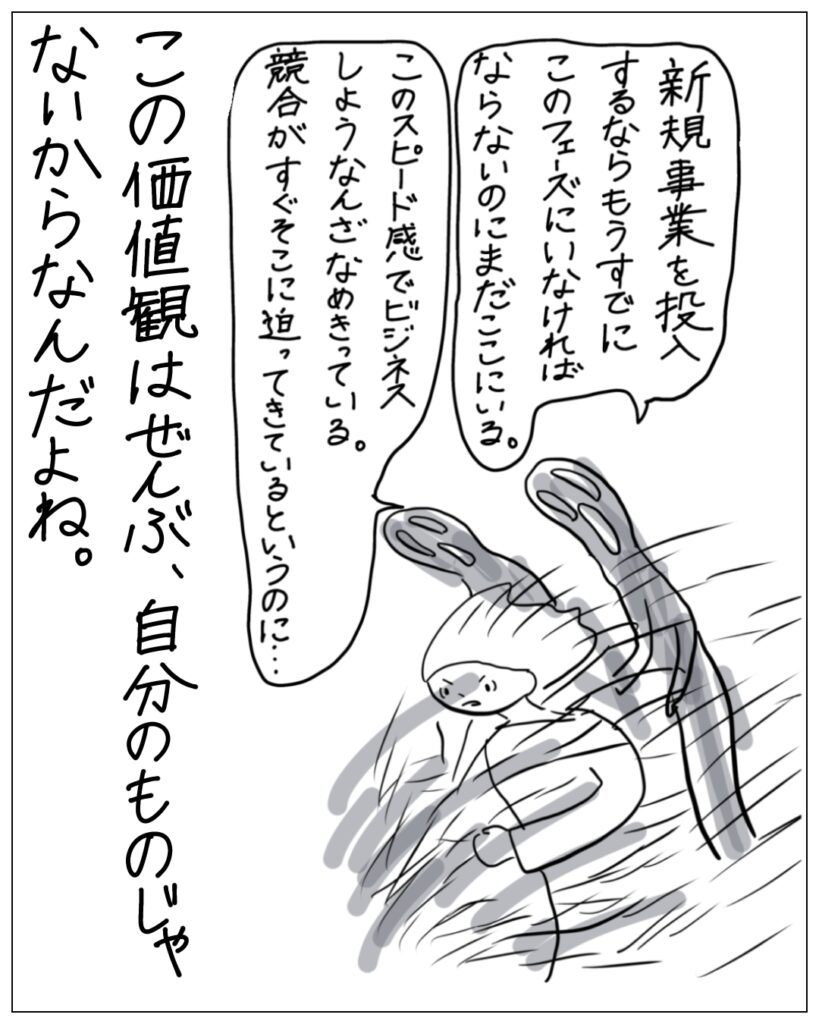 新規事業を投入
するならもうすでに
このフェーズにいなければ
ならないのにまだここにいる。
このスピード感でビジネス
しようなんざなめきっている。
競合がすぐそこに迫ってきているというのに…
この価値観はぜんぶ、自分のものじゃ
ないからなんだよね。